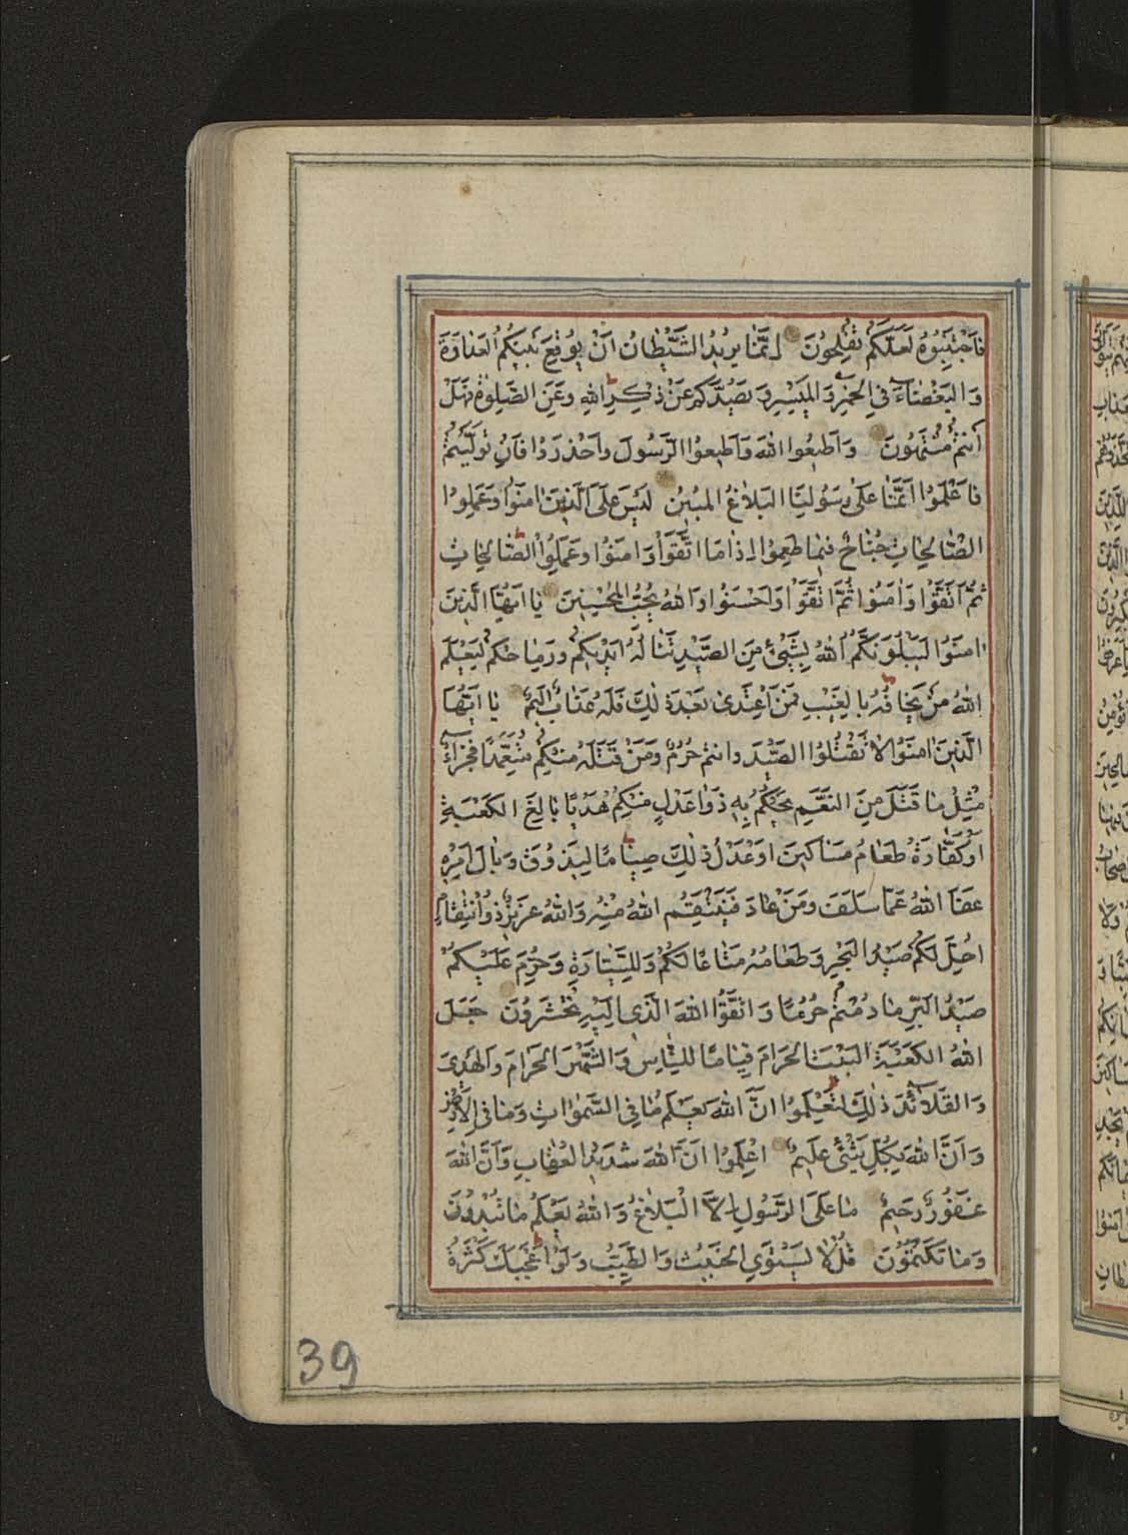 فَاجْتَنِبُوهُ لَعَلَّكُمْ تُفْلِحُونَ اِنَّمٰا يُرِيدُ الشَّيْطٰانُ اَنْ يُوقِعَ بَيْنَكُمُ الْعَدٰاوَةَ
وَالْبَغْضٰاءَ فِي الْخَمْرِ وَالْمَيْسِرِ وَيَصُدَّكُمْ عَنْ ذِكْرِ اللّٰهِ وَعَنِ الصَّلٰوةِ فَهَلْ
اَنْتُمْ مُنْتَهُونَ وَاَطِيعُوا اللّٰهَ وَاَطِيعُوا الرَّسُولَ وَاحْذَرُوا فَاِنْ تَوَلَّيْتُمْ
فَاعْلَمُوا اَنَّمٰا عَلٰى رَسُولِنَا الْبَلٰاغُ الْمُبِينُ لَيْسَ عَلَى الَّذِينَ اٰمَنُوا وَعَمِلُوا
الصّٰالِحٰاتِ جُنٰاحٌ فِيمٰا طَعِمُوا اِذٰا مَا اتَّقَوْا وَاٰمَنُوا وَعَمِلُوا الصّٰالِحٰاتِ
ثُمَّ اتَّقَوْا وَاٰمَنُوا ثُمَّ اتَّقَوْا وَاَحْسَنُوا وَاللّٰهُ يُحِبُّ الْمُحْسِنِينَ يٰا اَيُّهَا الَّذِينَ
اٰمَنُوا لَيَبْلُوَنَّكُمُ اللّٰهُ بِشَيْءٍ مِنَ الصَّيْدِ تَنٰالُهُ اَيْدِيكُمْ وَرِمٰاحُكُمْ لِيَعْلَمَ
اللّٰهُ مَنْ يَخٰافُهُ بِالْغَيْبِ فَمَنِ اعْتَدٰى بَعْدَ ذٰلِكَ فَلَهُ عَذٰابٌ اَلِيمٌ يٰا اَيُّهَا
الَّذِينَ اٰمَنُوا لٰا تَقْتُلُوا الصَّيْدَ وَاَنْتُمْ حُرُمٌ وَمَنْ قَتَلَهُ مِنْكُمْ مُتَعَمِّدًا فَجَزٰاءٌ
مِثْلُ مٰا قَتَلَ مِنَ النَّعَمِ يَحْكُمُ بِهِ ذَوٰا عَدْلٍ مِنْكُمْ هَدْيًا بٰالِغَ الْكَعْبَةِ
اَوْ كَفّٰارَةٌ طَعٰامُ مَسٰاكِينَ اَوْ عَدْلُ ذٰلِكَ صِيٰامًا لِيَذُوقَ وَبٰالَ اَمْرِهِ
عَفَا اللّٰهُ عَمّٰا سَلَفَ وَمَنْ عٰادَ فَيَنْتَقِمُ اللّٰهُ مِنْهُ وَاللّٰهُ عَزِيزٌ ذُو انْتِقٰامٍ
اُحِلَّ لَكُمْ صَيْدُ الْبَحْرِ وَطَعٰامُهُ مَتٰاعًا لَكُمْ وَلِلسَّيّٰارَةِ وَحُرِّمَ عَلَيْكُمْ
صَيْدُ الْبَرِّ مٰا دُمْتُمْ حُرُمًا وَاتَّقُوا اللّٰهَ الَّذِي اِلَيْهِ تُحْشَرُونَ جَعَلَ
اللّٰهُ الْكَعْبَةَ الْبَيْتَ الْحَرٰامَ قِيٰامًا لِلنّٰاسِ وَالشَّهْرَ الْحَرٰامَ وَالْهَدْيَ
وَالْقَلٰائِدَ ذٰلِكَ لِتَعْلَمُوا اَنَّ اللّٰهَ يَعْلَمُ مٰا فِي السَّمٰوٰاتِ وَمٰا فِي الْاَرْضِ
وَاَنَّ اللّٰهَ بِكُلِّ شَيْءٍ عَلِيمٌ اِعْلَمُوا اَنَّ اللّٰهَ شَدِيدُ الْعِقٰابِ وَاَنَّ اللّٰهَ
غَفُورٌ رَحِيمٌ مٰا عَلَى الرَّسُولِ اِلَّا الْبَلٰاغُ وَاللّٰهُ يَعْلَمُ مٰا تُبْدُونَ
وَمٰا تَكْتُمُونَ قُلْ لٰا يَسْتَوِي الْخَبِيثُ وَالطَّيِّبُ وَلَوْ اَعْجَبَكَ كَثْرَةُ
39